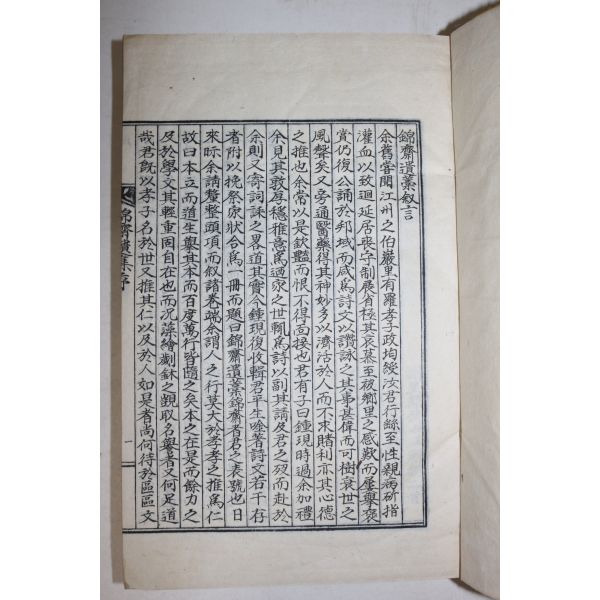 錦齋遺藁叙言
余舊嘗聞江州之伯巖里有羅孝子政均綬汝君行絲至性親病斫指
灌血以致迴延居喪守制展省極其哀慕至被鄕里之感歎而屢擧褒
賞仍復公誦於邦域而咸爲詩文以讚詠之其事甚偉而可樹衰世之
風聲矣又旁通醫藥得其神妙多以濟活於人而不求賭利亦其心德
之推也余常以是欽豔而恨不得面接也君有子曰鍾現時過余加禮
余見其敦厚穩雅意爲通家之世輒爲詩以副其請及君之歿而赴於
余則又寄詞誄之畧道其實今鍾現復收輯君平生唫著詩文若干存
者附以挽祭家狀合爲一冊而題曰錦齋遺藁錦齋者君之表號也日
來眎余請釐整頭項而叙諸卷端余謂人之行莫大於孝孝之推爲仁
故曰本立而道生擧其本而百度萬行皆隨之矣本之在是而餘力之
及於學文其輕重固自在也而况藻繪劌鉥之覬取名譽者又何足道
哉君旣以孝子名於世又推其仁以及於人如是者尚何待於區區文
錦齋遺藁序
一